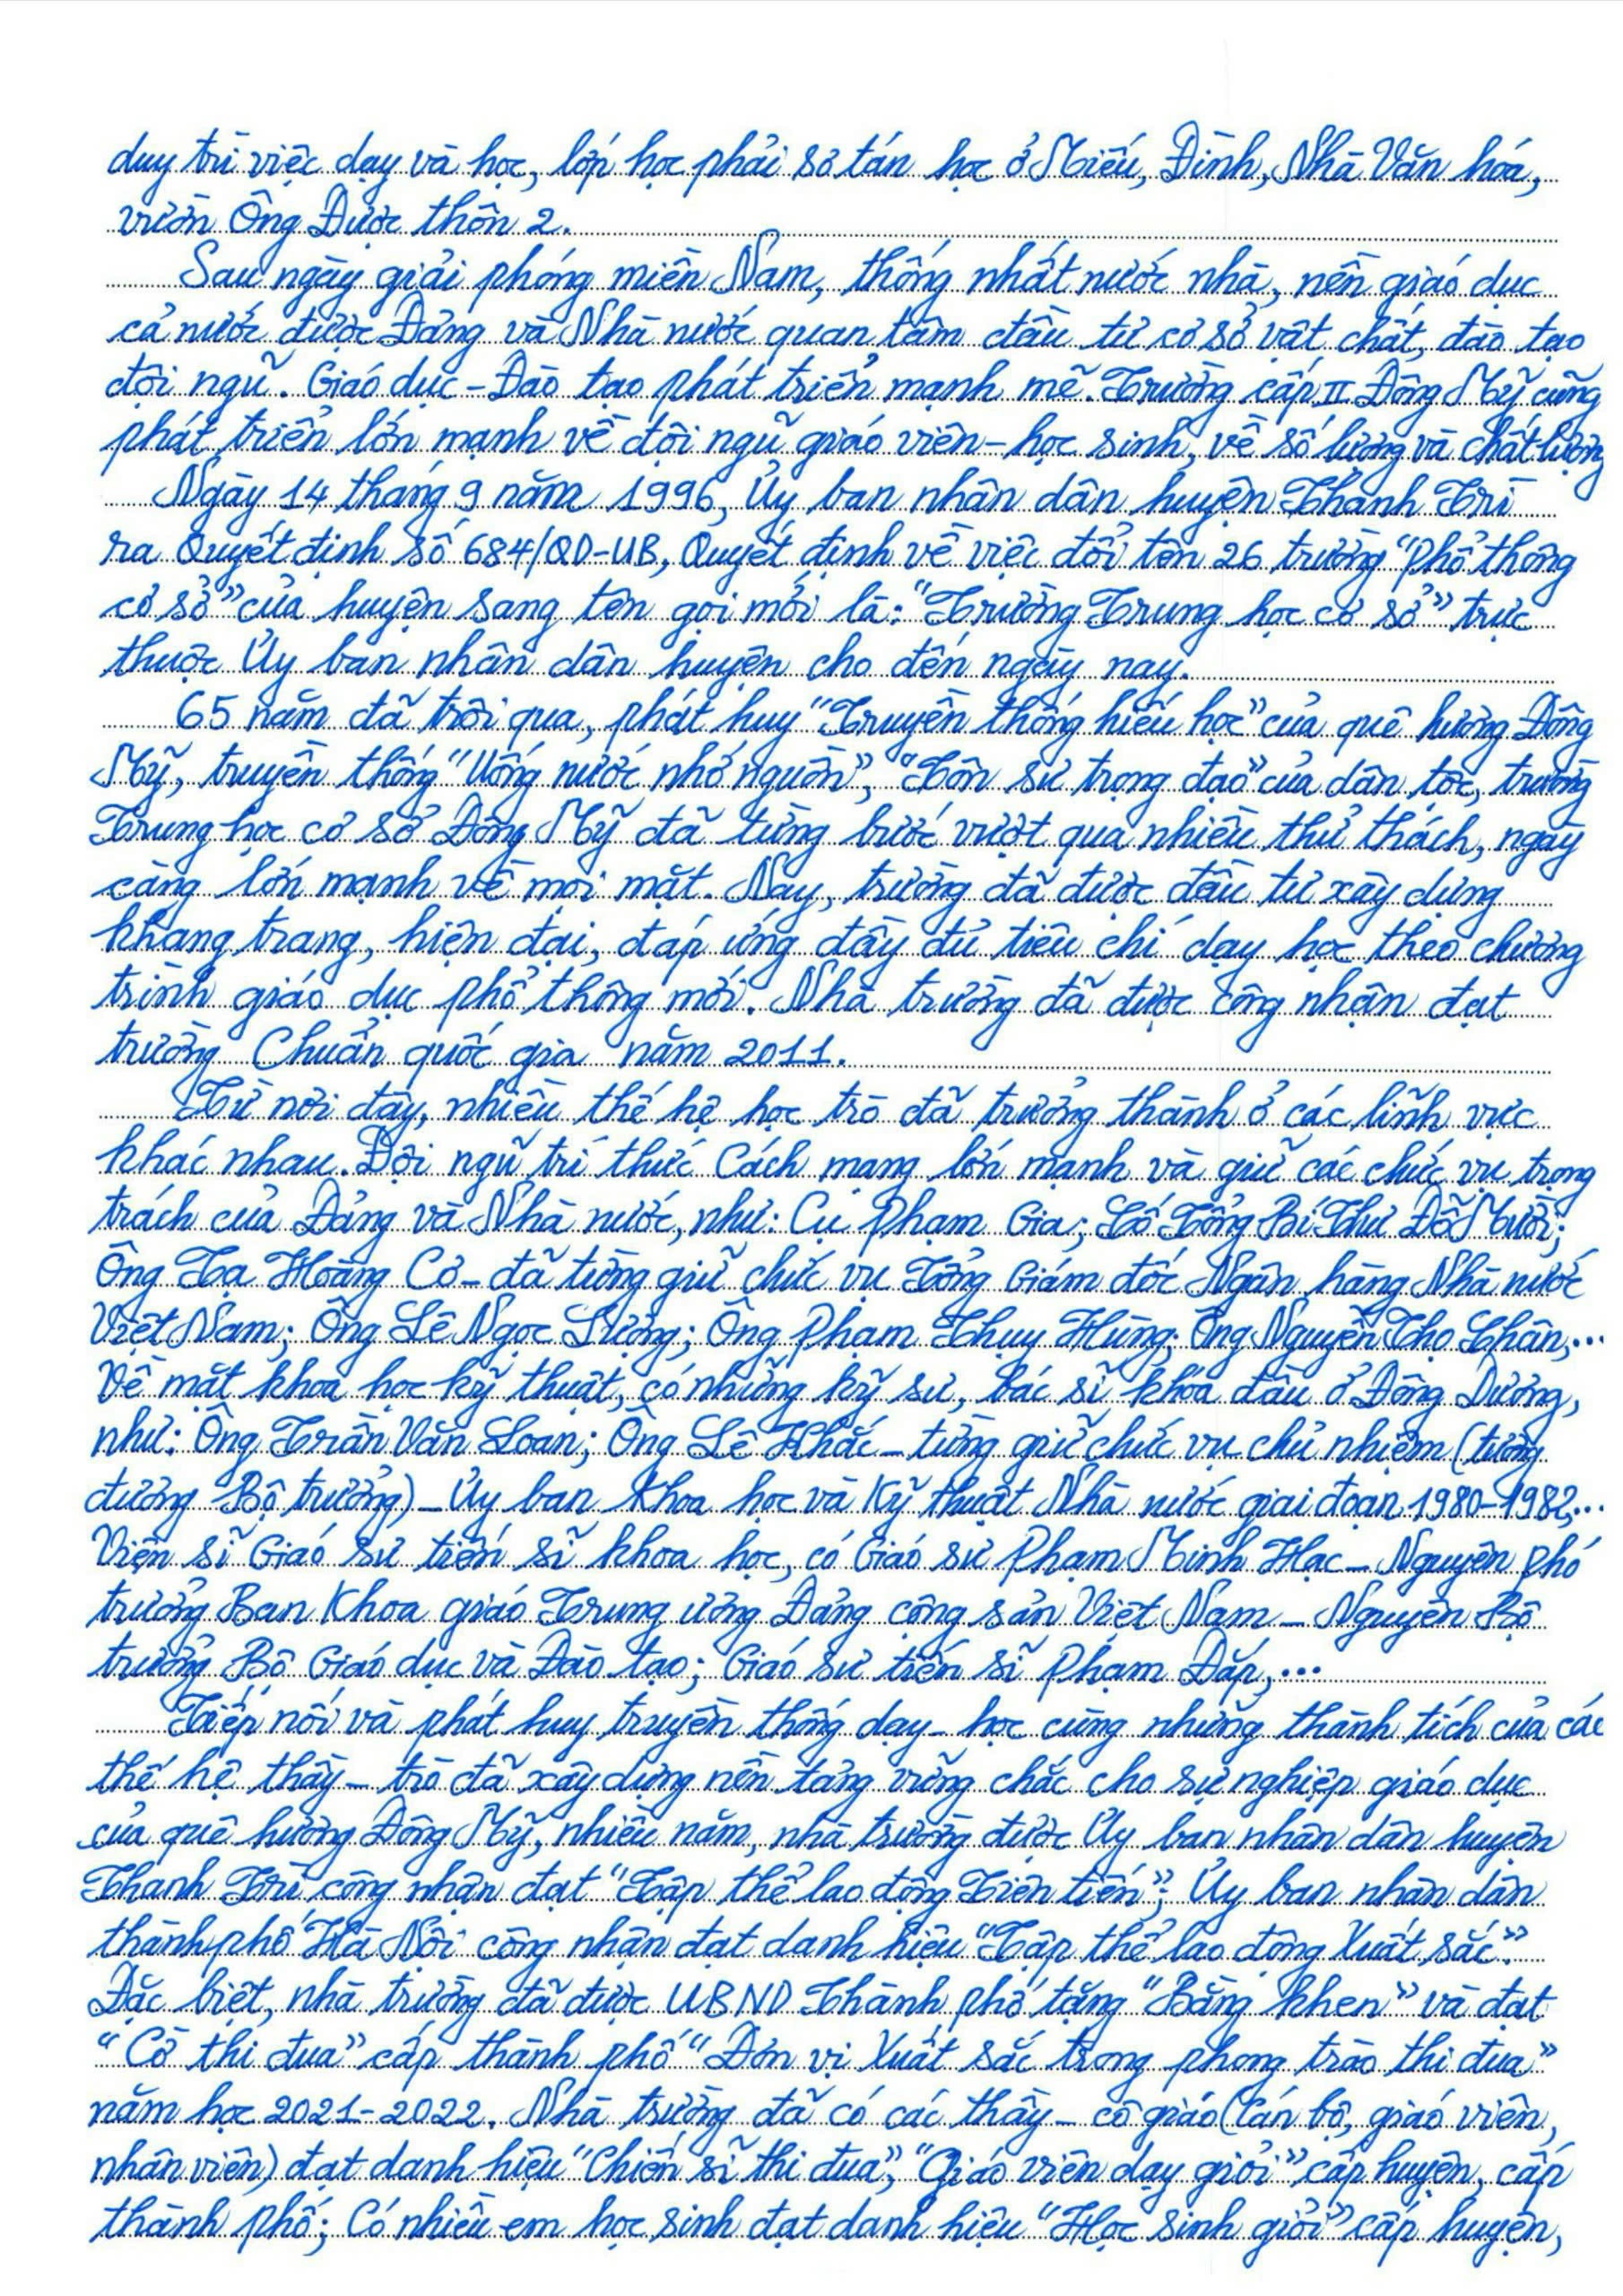 duy trì việc dạy và học, lớp học phải sơ tán học ở Miếu, Đình, Nhà Văn hóa,
vườn Ông Được thôn 2.
Sau ngày giải phóng miền Nam, thống nhất nước nhà, nền giáo dục
cả nước được Đảng và Nhà nước quan tâm đầu tư cơ sở vật chất, đào tạo
đội ngũ. Giáo dục - Đào tạo phát triển mạnh mẽ. Trường cấp II Đông Mỹ cũng
phát triển lớn mạnh về đội ngũ giáo viên - học sinh, về số lượng và chất lượng
Ngày 14 tháng 9 năm 1996, Ủy ban nhân dân huyện Thanh Trì
ra Quyết định số 684/QD-UB, Quyết định về việc đổi tên 26 trường "Phổ thông
cơ sở" của huyện sang tên gọi mới là: "Trường Trung học cơ sở" trực
thuộc Ủy ban nhân dân huyện cho đến ngày nay.
65 năm đã trôi qua, phát huy "Truyền thống hiếu học" của quê hương Đông
Mỹ, truyền thống "Uống nước nhớ nguồn", "Tôn sư trọng đạo" của dân tộc, trường
Trung học cơ sở Đông Mỹ đã từng bước vượt qua nhiều thử thách, ngày
càng lớn mạnh về mọi mặt. Nay, trường đã được đầu tư xây dựng
khang trang, hiện đại, đáp ứng đầy đủ tiêu chí dạy học theo chương
trình giáo dục phổ thông mới. Nhà trường đã được công nhận đạt
trường Chuẩn quốc gia năm 2011.
Từ nơi đây, nhiều thế hệ học trò đã trưởng thành ở các lĩnh vực
khác nhau. Đội ngũ trí thức Cách mạng lớn mạnh và giữ các chức vụ trọng
trách của Đảng và Nhà nước, như: Cụ Phạm Gia; Cố Tổng Bí Thư Đỗ Mười;
Ông Tạ Hoàng Cơ - đã từng giữ chức vụ Tổng Giám đốc Ngân hàng Nhà nước
Việt Nam; Ông Lê Ngọc Lương; Ông Phạm Thụy Hùng; Ông Nguyễn Thọ Chân,...
Về mặt khoa học kỹ thuật, có những kỹ sư, bác sĩ khóa đầu ở Đông Dương,
như: Ông Trần Văn Loan; Ông Lê Khắc - từng giữ chức vụ chủ nhiệm (tương
đương Bộ trưởng) - Ủy ban Khoa học và Kỹ thuật Nhà nước giai đoạn 1980-1982,...
Viện sĩ Giáo sư tiến sĩ khoa học, có Giáo sư Phạm Minh Hạc - Nguyên phó
trưởng Ban Khoa giáo Trung ương Đảng cộng sản Việt Nam - Nguyên Bộ
trưởng Bộ Giáo dục và Đào tạo; Giáo sư tiến sĩ Phạm Đắp,...
Tiếp nối và phát huy truyền thống dạy - học cùng những thành tích của các
thế hệ thầy - trò đã xây dựng nền tảng vững chắc cho sự nghiệp giáo dục
của quê hương Đông Mỹ, nhiều năm, nhà trường được Ủy ban nhân dân huyện
Thanh Trì công nhận đạt "Tập thể lao động Tiên tiến"; Ủy ban nhân dân
thành phố Hà Nội công nhận đạt danh hiệu "Tập thể lao động Xuất sắc".
Đặc biệt, nhà trường đã được UBND Thành phố tặng "Bằng khen" và đạt
"Cờ thi đua" cấp thành phố "Đơn vị Xuất sắc trong phong trào thi đua"
năm học 2021-2022. Nhà trường đã có các thầy - cô giáo (Cán bộ, giáo viên,
nhân viên) đạt danh hiệu "Chiến sĩ thi đua", "Giáo viên dạy giỏi" cấp huyện, cấp
thành phố; Có nhiều em học sinh đạt danh hiệu "Học sinh giỏi" cấp huyện,